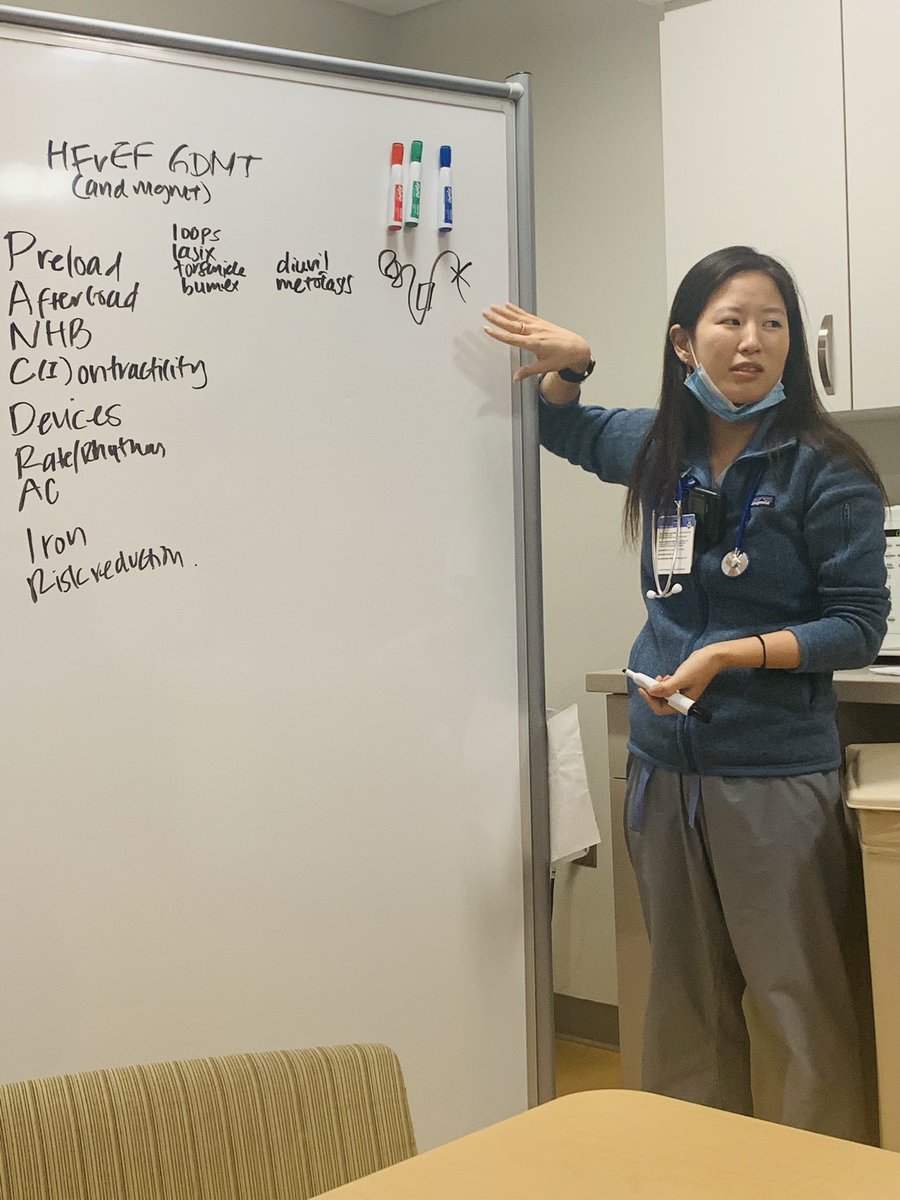 HFrEF GDMT
(and mgmt)
Preload
Afterload
NHB
C(I)ontractility
Devices
Rate/Rhythm
AC
Iron
Risk reduction.
loops
lasix
torsemide
bumex
diuril
metolazs